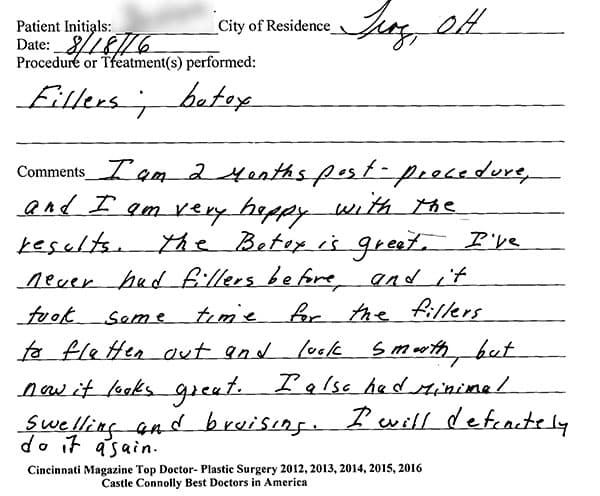 Patient Initials: City of Residence Troy, OH
Date: 8/18/16
Procedure or Treatment(s) performed:
Fillers; botox
Comments I am 2 months post-procedure,
and I am very happy with the
results. The Botox is great. I've
never had fillers before, and it
took some time for the fillers
to flatten out and look smooth, but
now it looks great. I also had minimal
swelling and bruising. I will definitely
do it again.
Cincinnati Magazine Top Doctor- Plastic Surgery 2012, 2013, 2014, 2015, 2016
Castle Connolly Best Doctors in America